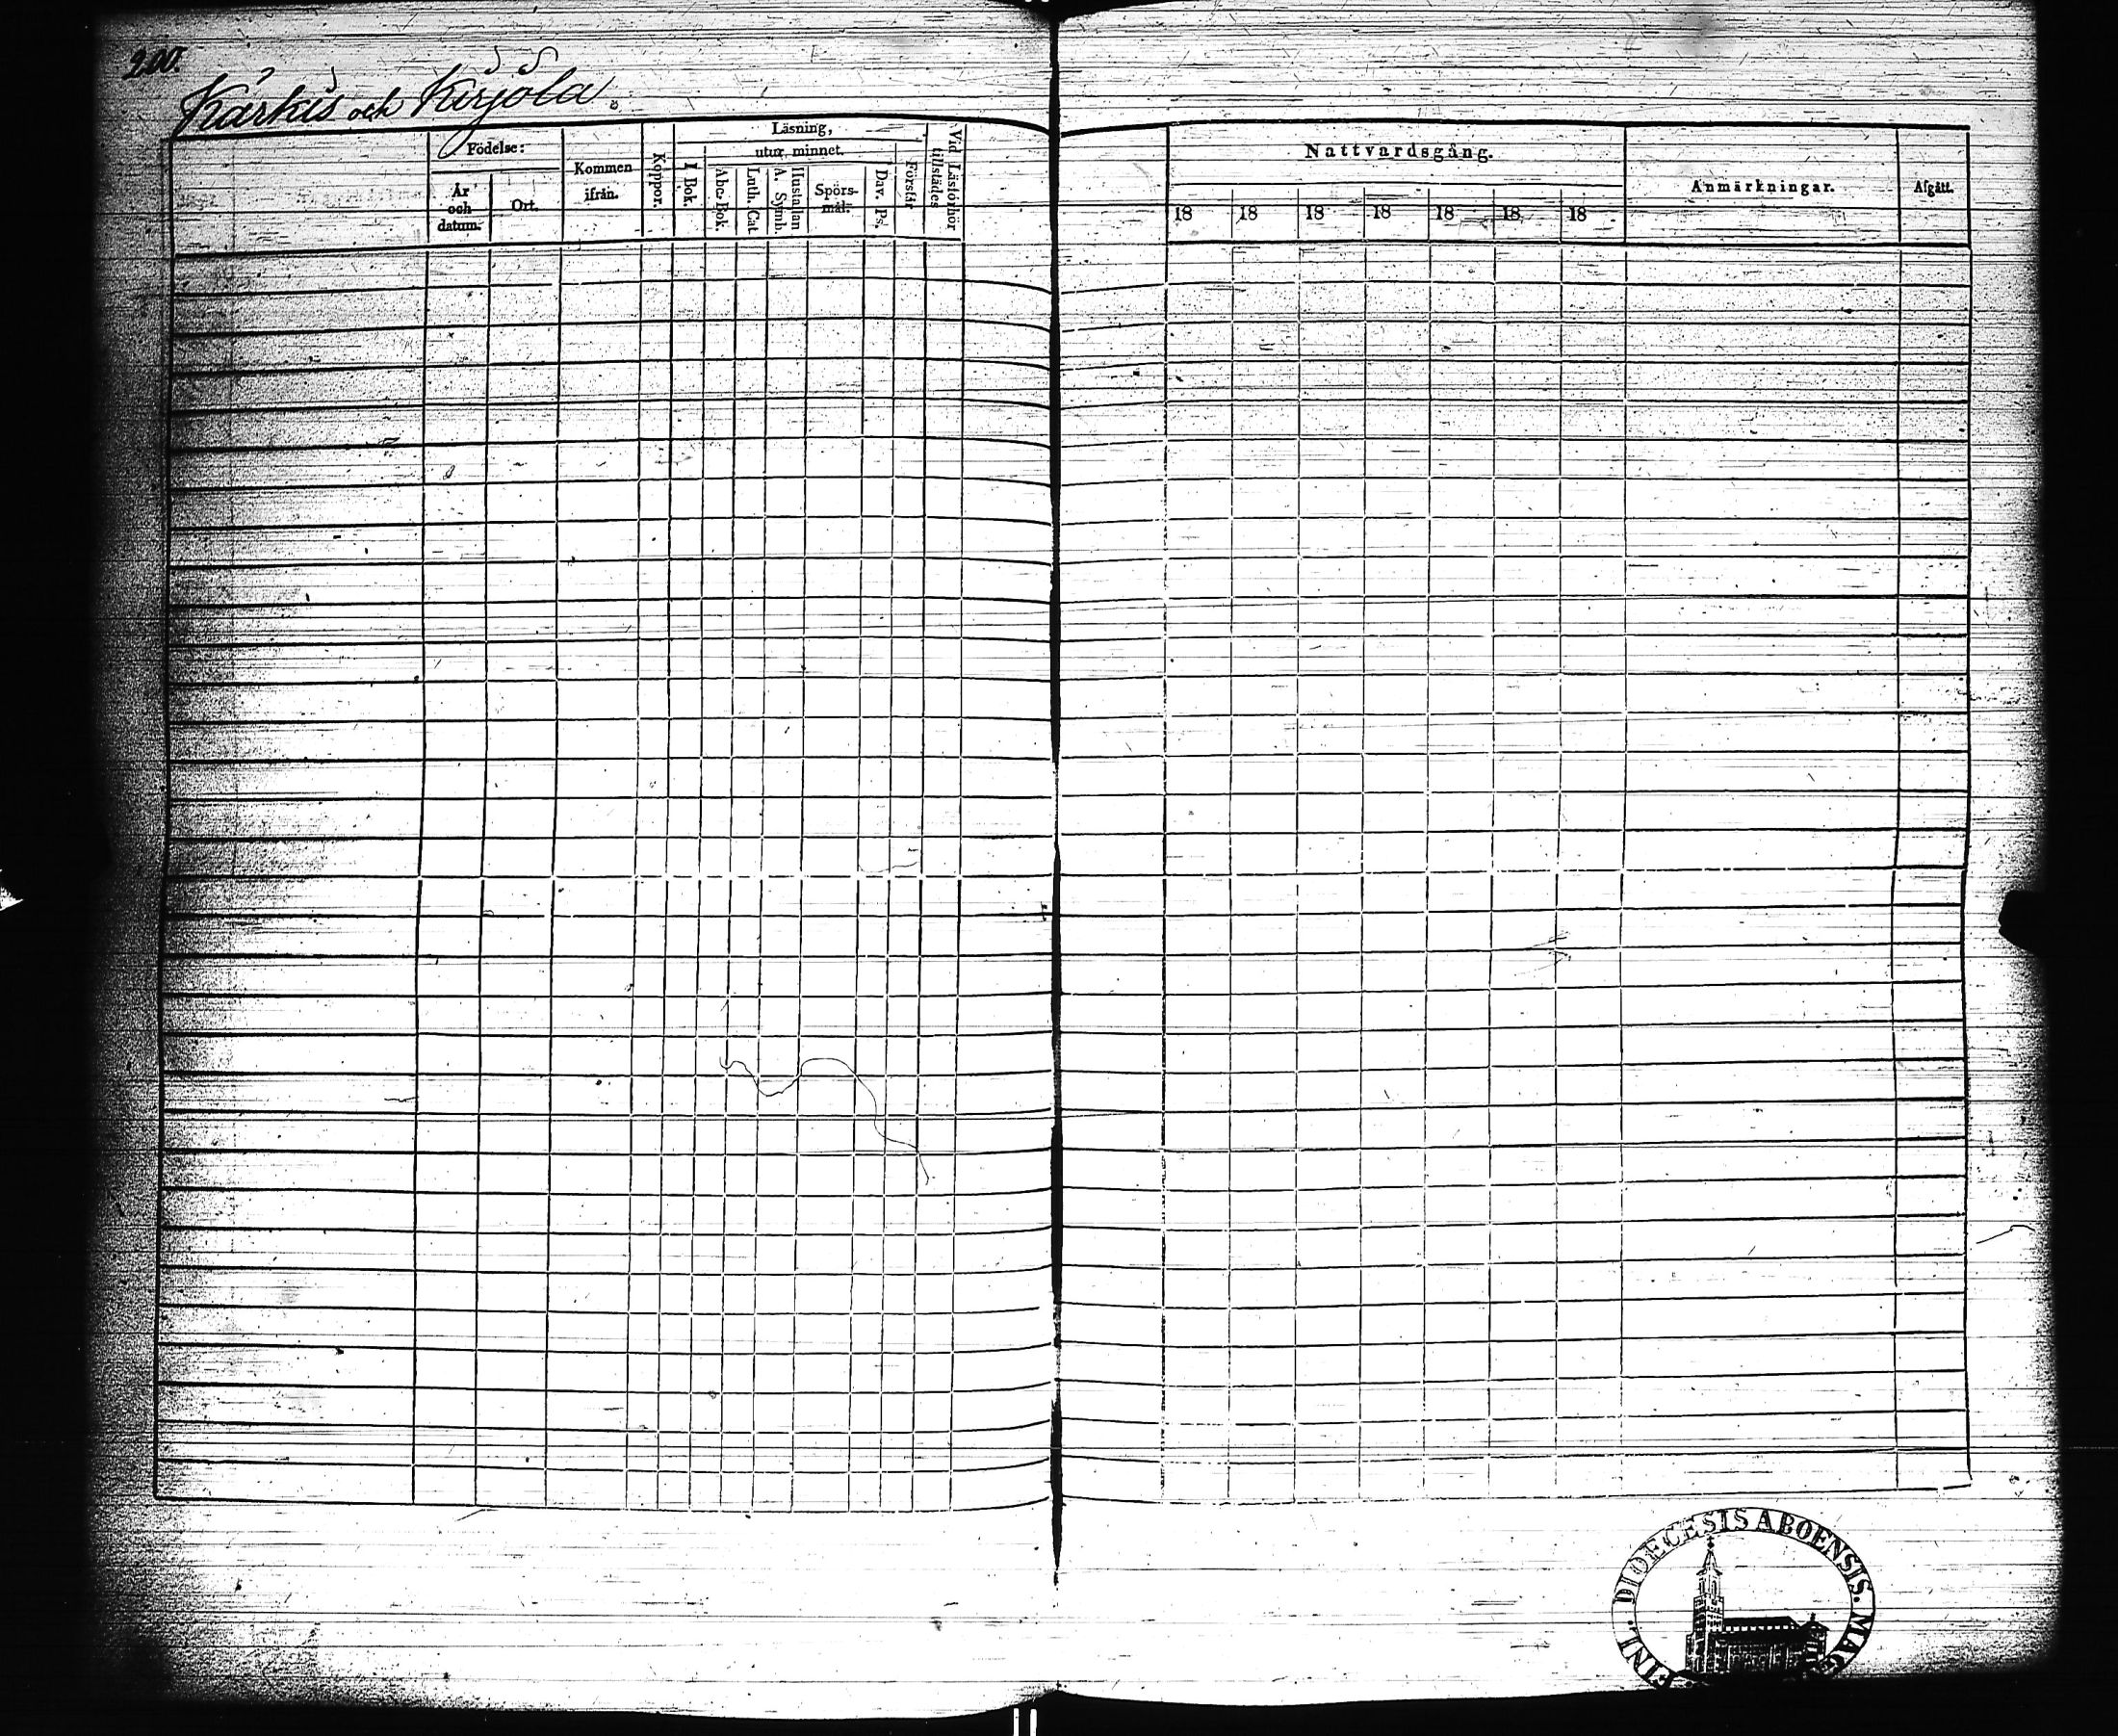 200.
Kärkis och Kirjola.
Födelse:
År och datum.
Ort.
Kommen ifrån.
Koppor.
Läsning,
I Bok.
utur minnet.
Abc-Bok.
Luth. Cat.
Hustaflan A. Symb.
Spörs-
mål.
Dav. Ps.
Förstår
Vid Läsförhör tillstädes
Nattvardsgång.
18 18 18 18 18 18 18
Anmärkningar.
Afgått.
FINL. DIOECESIS ABOENSIS. MAG